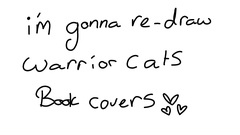 i'm gonna re-draw
warrior cats
Book covers ♡♡♡